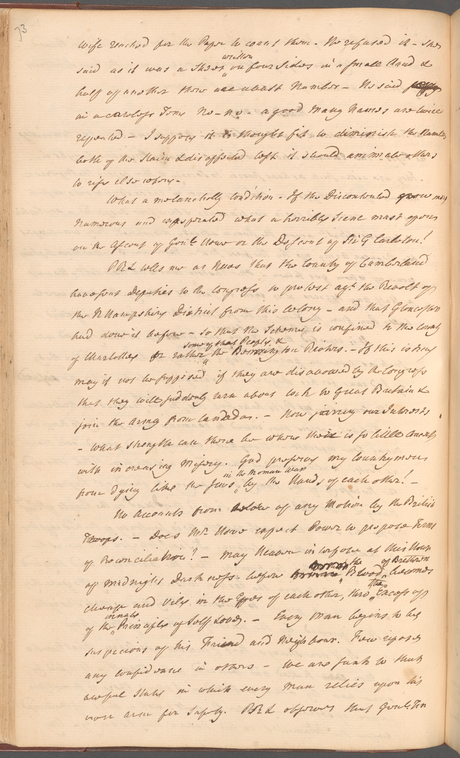 73
wife reached for the Paper to count them. He refused it - She
said as it was a Sheet written on four Sides in a small Hand &
half of another there was a vast Number - He said
in a careless Tone No - no - a good many Names are twice
repeated - I suppose it is thought fit to diminish the Number
both of the Staid & disaffected lest it should animate others
to rise elsewhere.
What a melancholly Condition - If the Discontented grow
numerous and exasperated what a horrible Scene must open
on the Ascent of Genl. Howe or the Descent of Sir G Carleton!
PRL tells me as News that the County of Cumberland
have sent Deputies to the Congress to protest agt. the Revolt of
the N Hampshire District from this Colony - and that Glocester
had done it before - so that the Scheme is confined to the County
of Charlotte or rather some of that People, & the Bennington Rioters. - If this is true
may it not be supposed if they are disavowed by the Congress
that they will suddenly turn about look to Great Britain &
join the Army from Canada. - How jarring our Interests
- What Strength can there be where there is so little
with increasing Misery. God preserve my Countrymen
from dying like the Jews in the Roman War by the Hands of each other! -
No Accounts from below of any Motion by the British
Troops. - Does Mr Howe expect Power to propose Terms
of Reconciliation? - May Heaven interpose at this Hour
of Midnight Darkness before the Blood of Brethren becomes
cheap and Vile in the Eyes of each other, thro' the Excess of
of the Principles of Self Love. - Every Man begins to be
suspicious of his Friend and Neighbour. Few repose
any confidence in others - We are sunk to that
awful State in which every Man relies upon his
own arm for Safety. PRL observes that